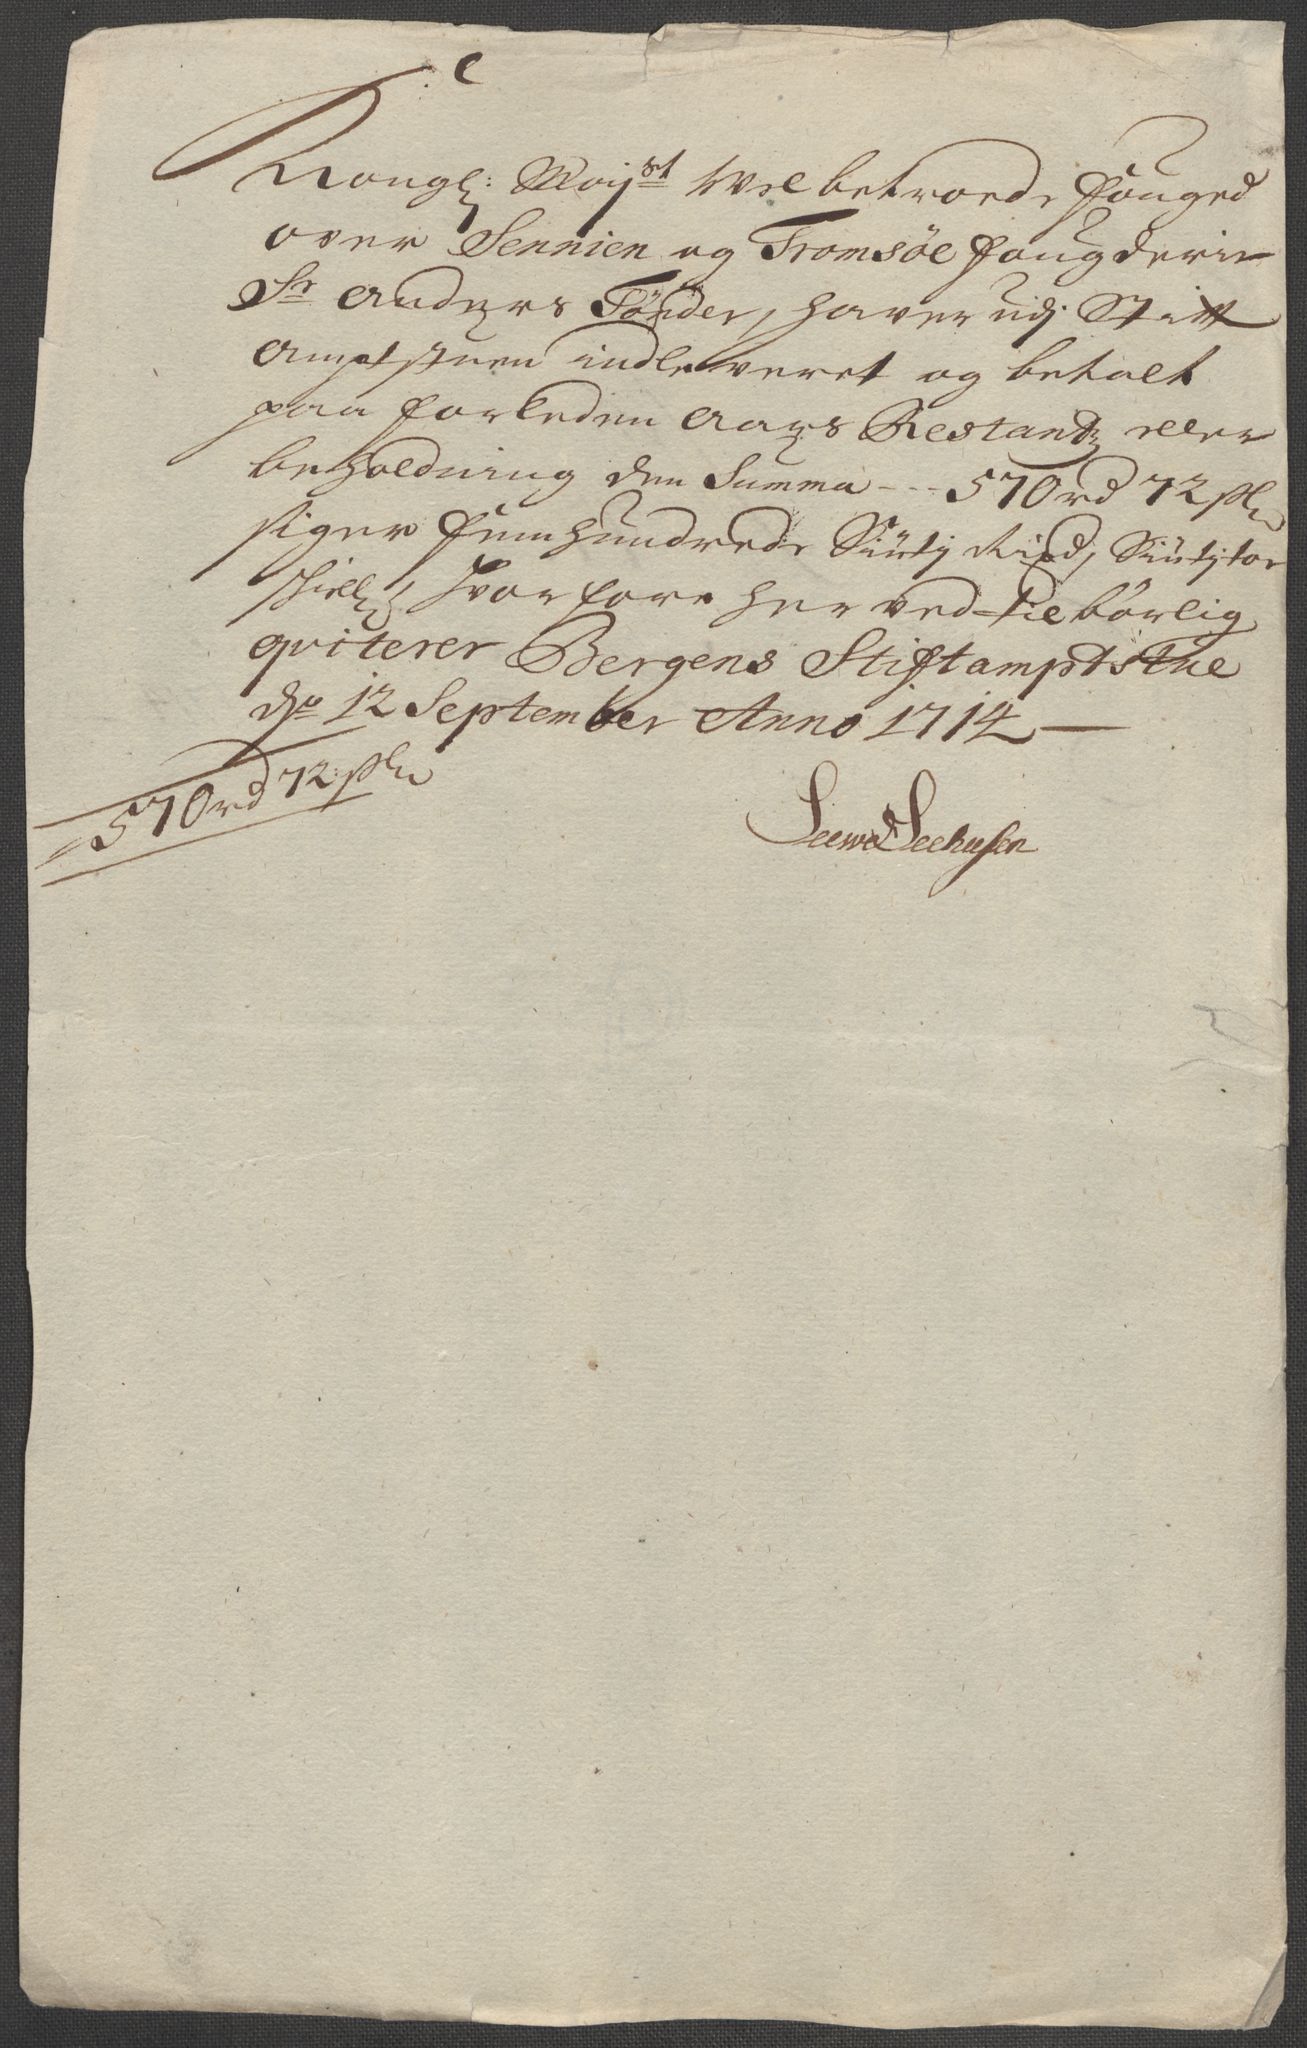 C
Kongl: Mayst Wel betroede fouged
over Sennien og Tromsöe fougderie
Sr Anders Tönder, haver udj Stift
Amptstuen indleveret og betalt
paa forleden Aars Restantz eller
beholdning den Summa --- 570 rd 72 sk
siger femhundrede Siutj Rixd, Siutjtoe
skill, hvorfore her ved tilbörlig
qviterer Bergens Stiftamptstue
dn 12 September Anno 1714
570 rd 72 sk
Seewe Seehusen